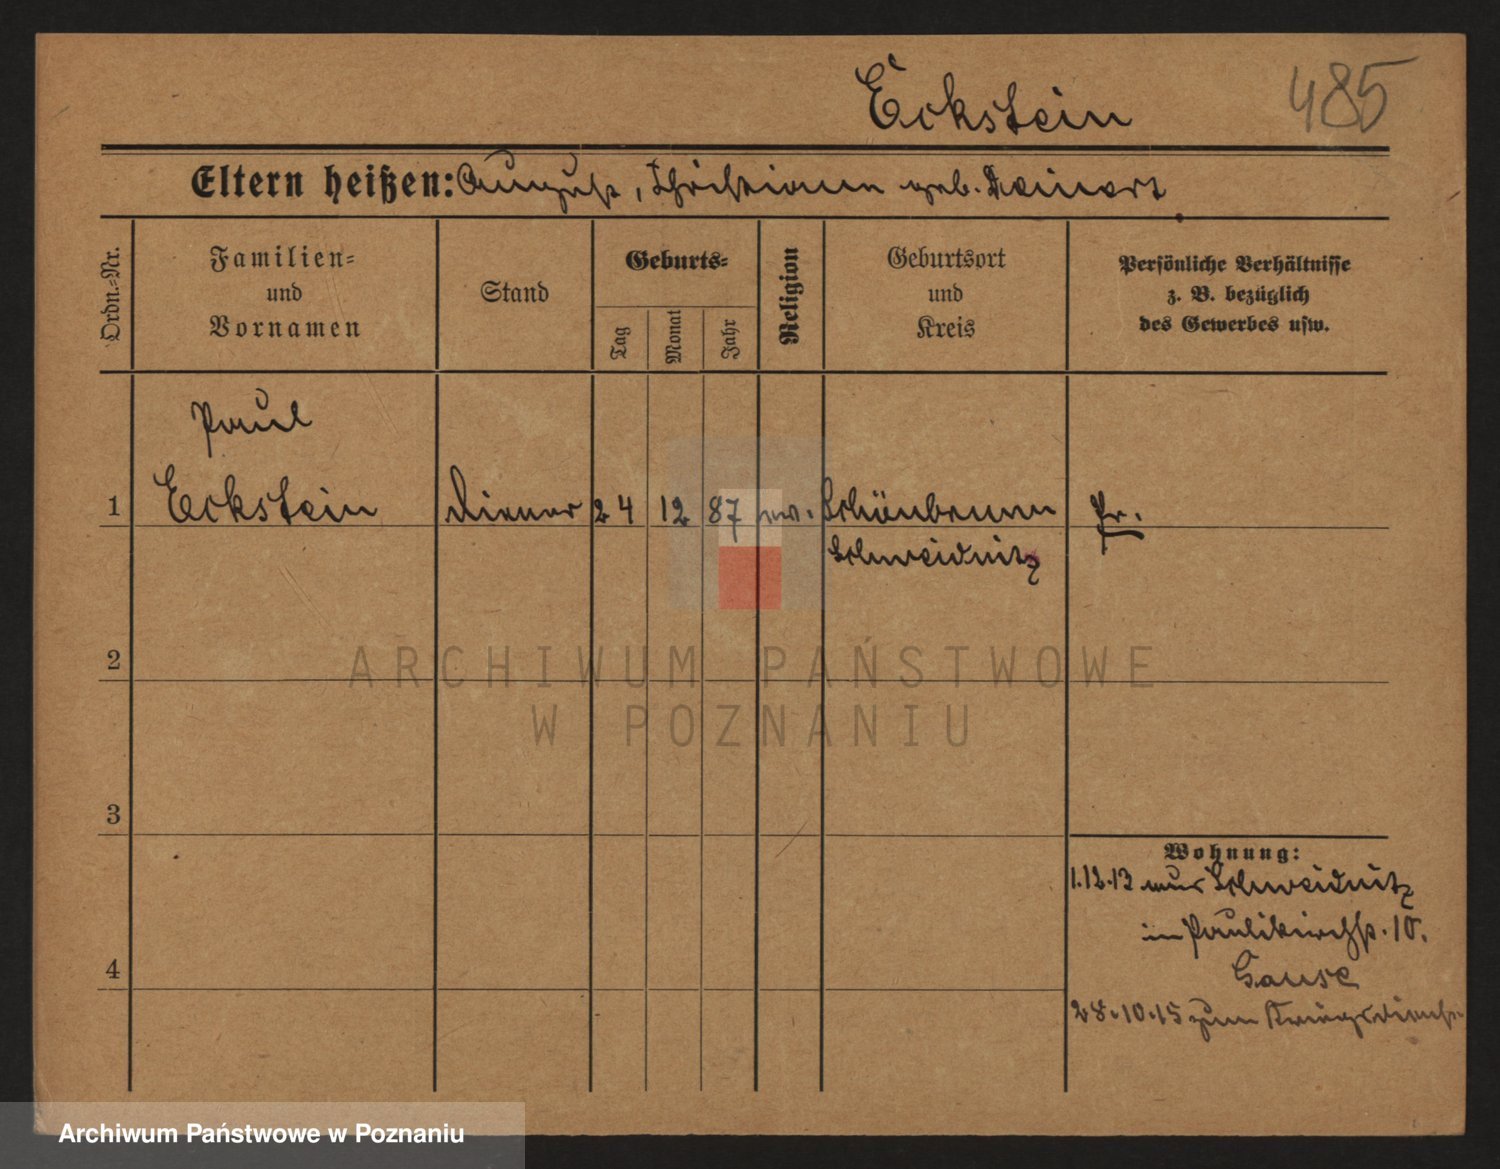 Eckstein
485
Eltern heißen: August, Christiane geb. Deinert
Ordn.-Nr.
Familien-
und
Vornamen
Stand
Geburts-
Tag
Monat
Jahr
Religion
Geburtsort
und
Kreis
Persönliche Verhältnisse
z. B. bezüglich
des Gewerbes usw.
Paul
1 Eckstein Diener 24 12 87 ev. Schönbrunn Pr.
Schweidnitz
2
ARCHIWUM PAŃSTWOWE
W POZNANIU
3
Wohnung:
1.12.13 aus Schweidnitz
in Paulikirchst. 10.
4
28.10.15 zum Kriegsdienst
Archiwum Państwowe w Poznaniu